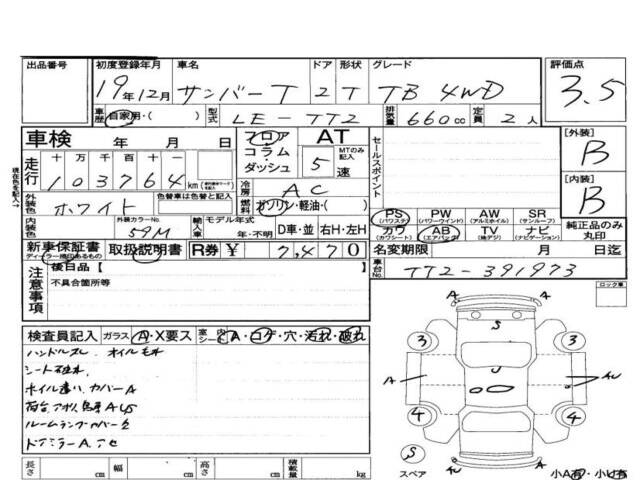 出品番号 初度登録年月 車名 ドア 形状 グレード 評価点
19年12月 サンバーT 2 T TB 4WD 3.5
車歴 自家用・( ) 型式 LE-TT2 排気量 660cc 定員 2人
車検 年 月 日 フロア・コラム・ダッシュ AT MTのみ記入 5速 セールスポイント [外装] B
走行 十万千百十一 103764km 冷房 AC [内装] B
外装色 ホワイト 色替車は色替と記入 燃料 ガソリン・軽油・( )
PS (パワステ) PW (パワーウィンド) AW (アルミホイル) SR (サンルーフ) 純正品のみ丸印
内装色 外装カラーNo. 59M 輸入車 モデル年式 年・不明 D車・並 右H・左H カワ (カワシート) AB (エアバック) TV (地デジ) ナビ (ナビゲーション)
新車保証書 ディーラー捺印あるもの 取扱説明書 R券 ¥ 7,470 名変期限 月 日迄
注意事項 後日品[ ] 車台No. TT2-391973
不具合箇所等 ロック車
検査員記入 ガラス A・X要ス 室内 シート A・コゲ・穴・汚れ・破れ
ハンドルスレ オイルモレ
ルームランプカバー欠
ドアミラーA.
A A S 3 3 U A 4 4 S A
スペア 小A有・小U有
長さ cm 幅 cm 高さ cm 積載量 kg
現在色を記入→